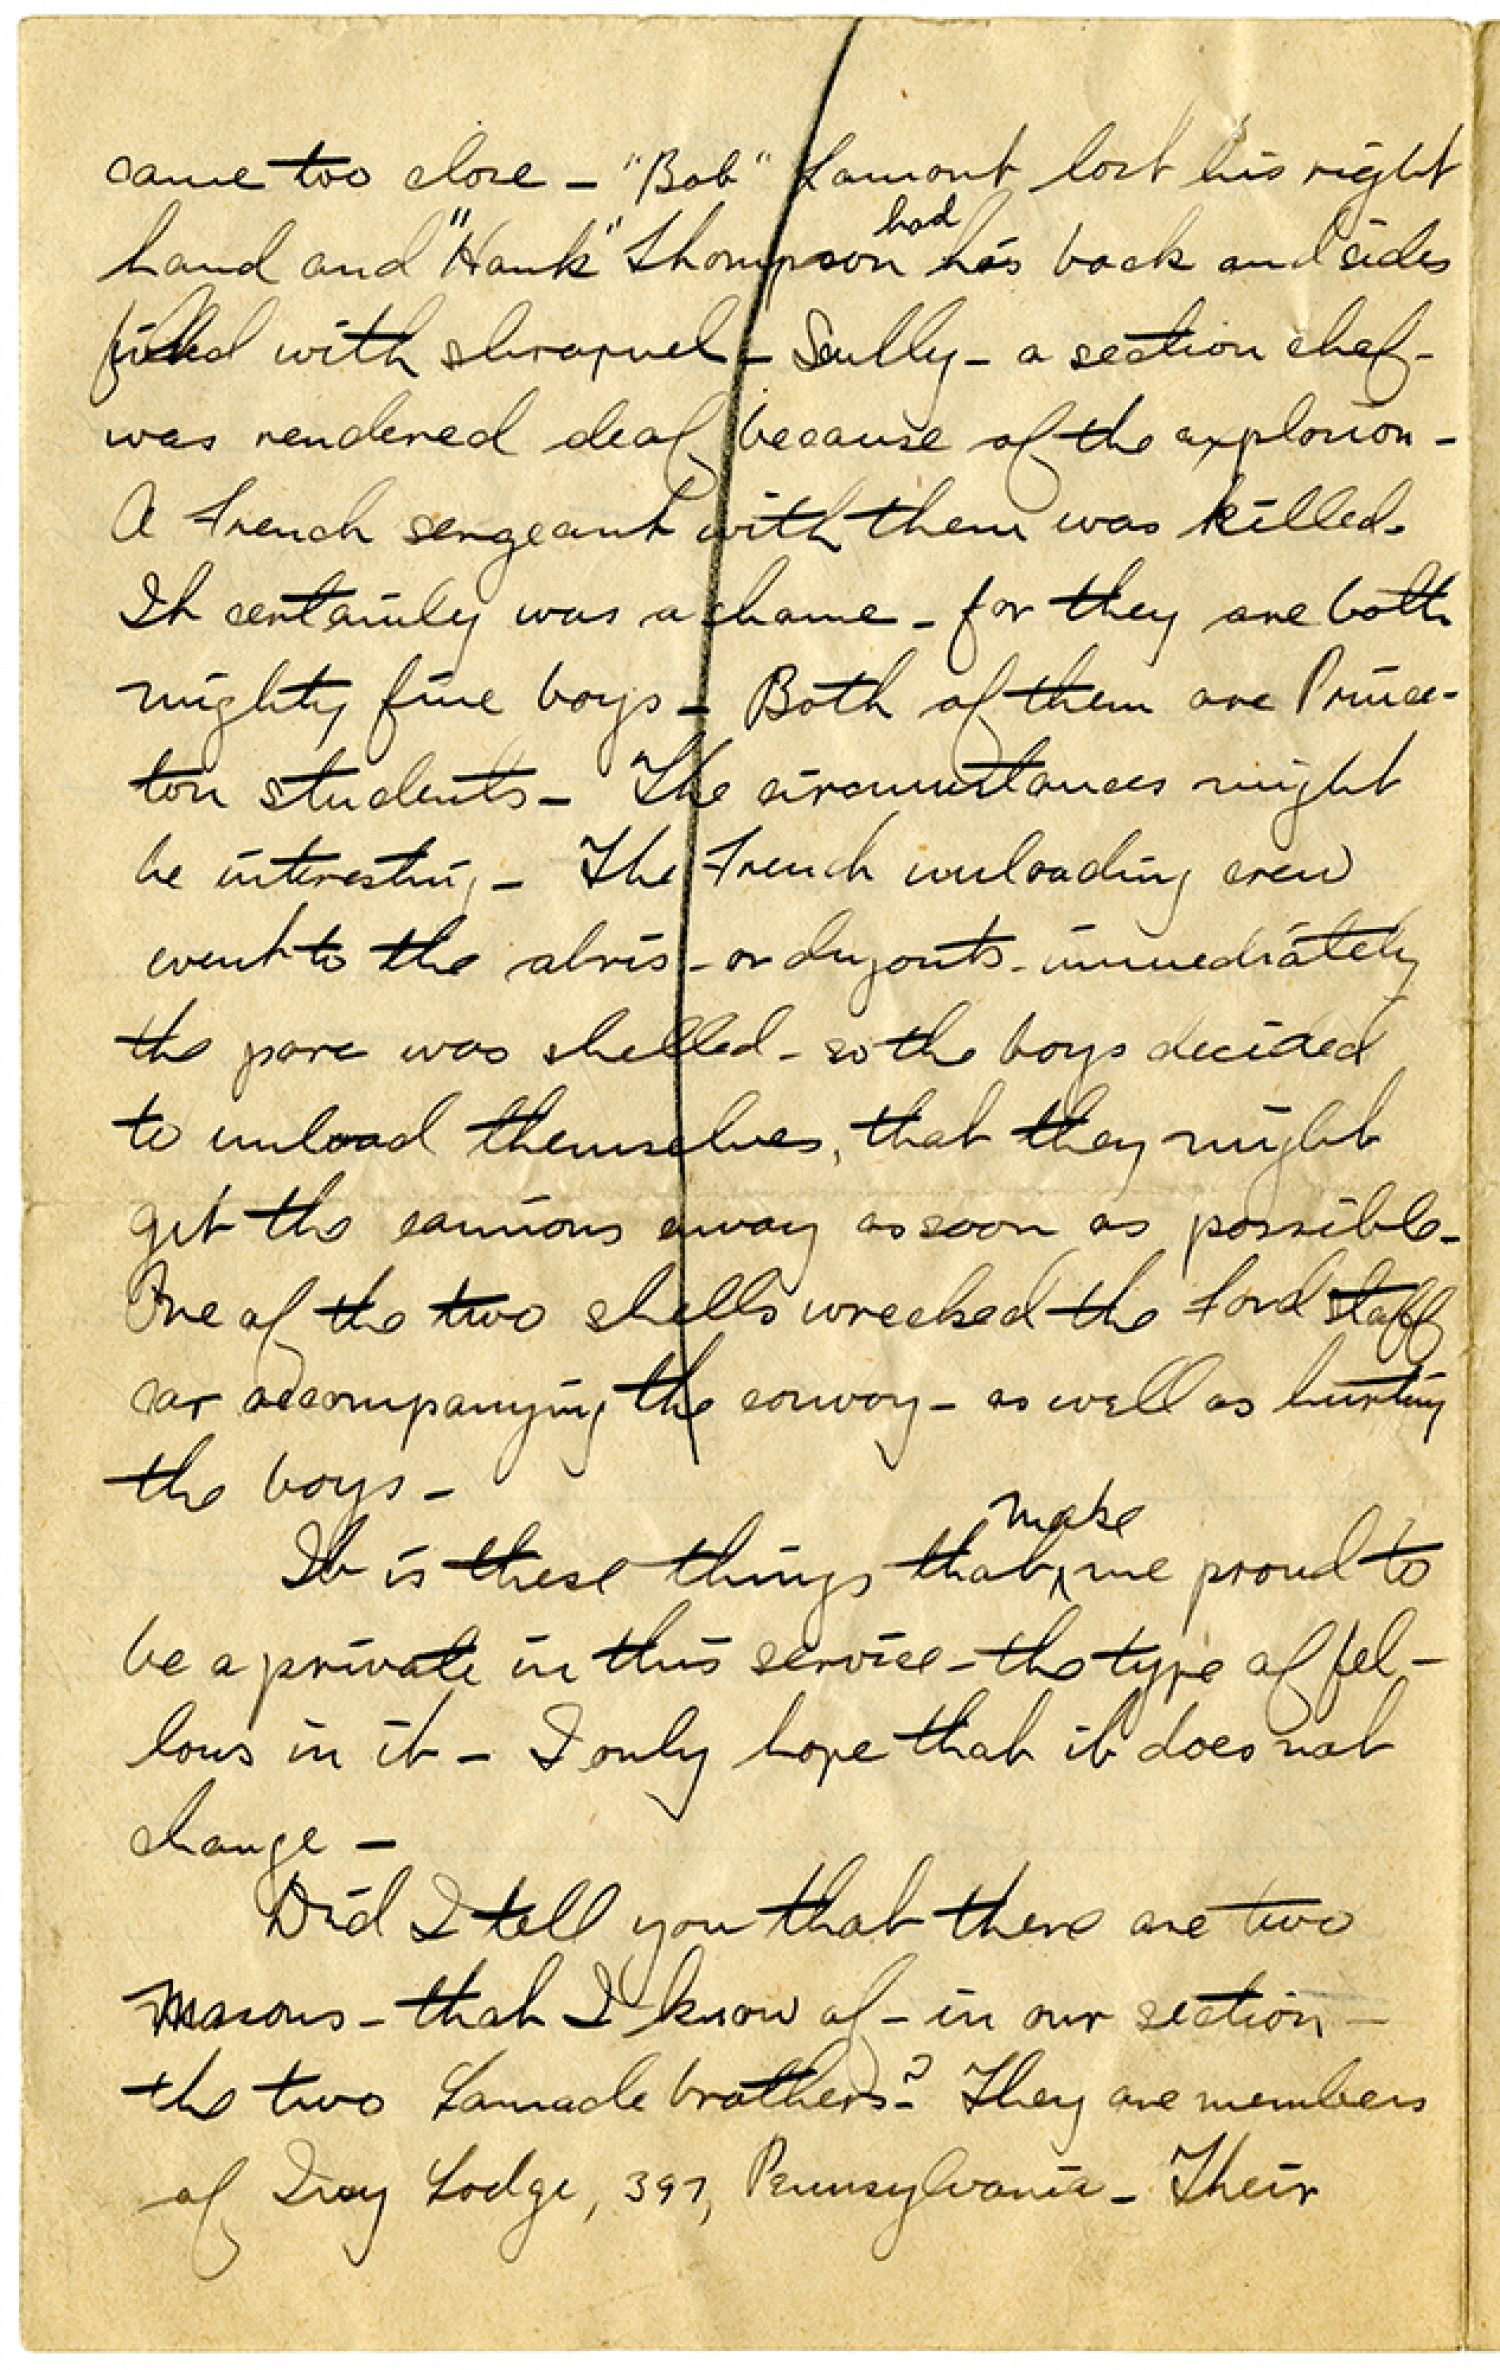 came too close - "Bob" Lamont lost his right
had
hand and "Hank" Thompson his back and sides
filled with shrapnel - Scully - a section chef -
was rendered deaf because of the explosion -
A French sergeant with them was killed.
It certainly was a shame - for they are both
mighty fine boys - Both of them are Prince-
ton students - The circumstances might
be interesting - The French unloading crew
went to the abris - or dugouts - immediately
the parc was shelled - so the boys decided
to unload themselves, that they might
get the camions away as soon as possible -
One of the two shells wrecked the Ford staff
car accompanying the convoy - as well as hurting
the boys -
make
It is these things that ^ me proud to
be a private in this service - the type of fel-
lows in it - I only hope that it does not
change -
Did I tell you that there are two
Masons - that I know of - in our section -
the two Lamade brothers? They are members
of Ivy Lodge, 397, Pennsylvania - Their